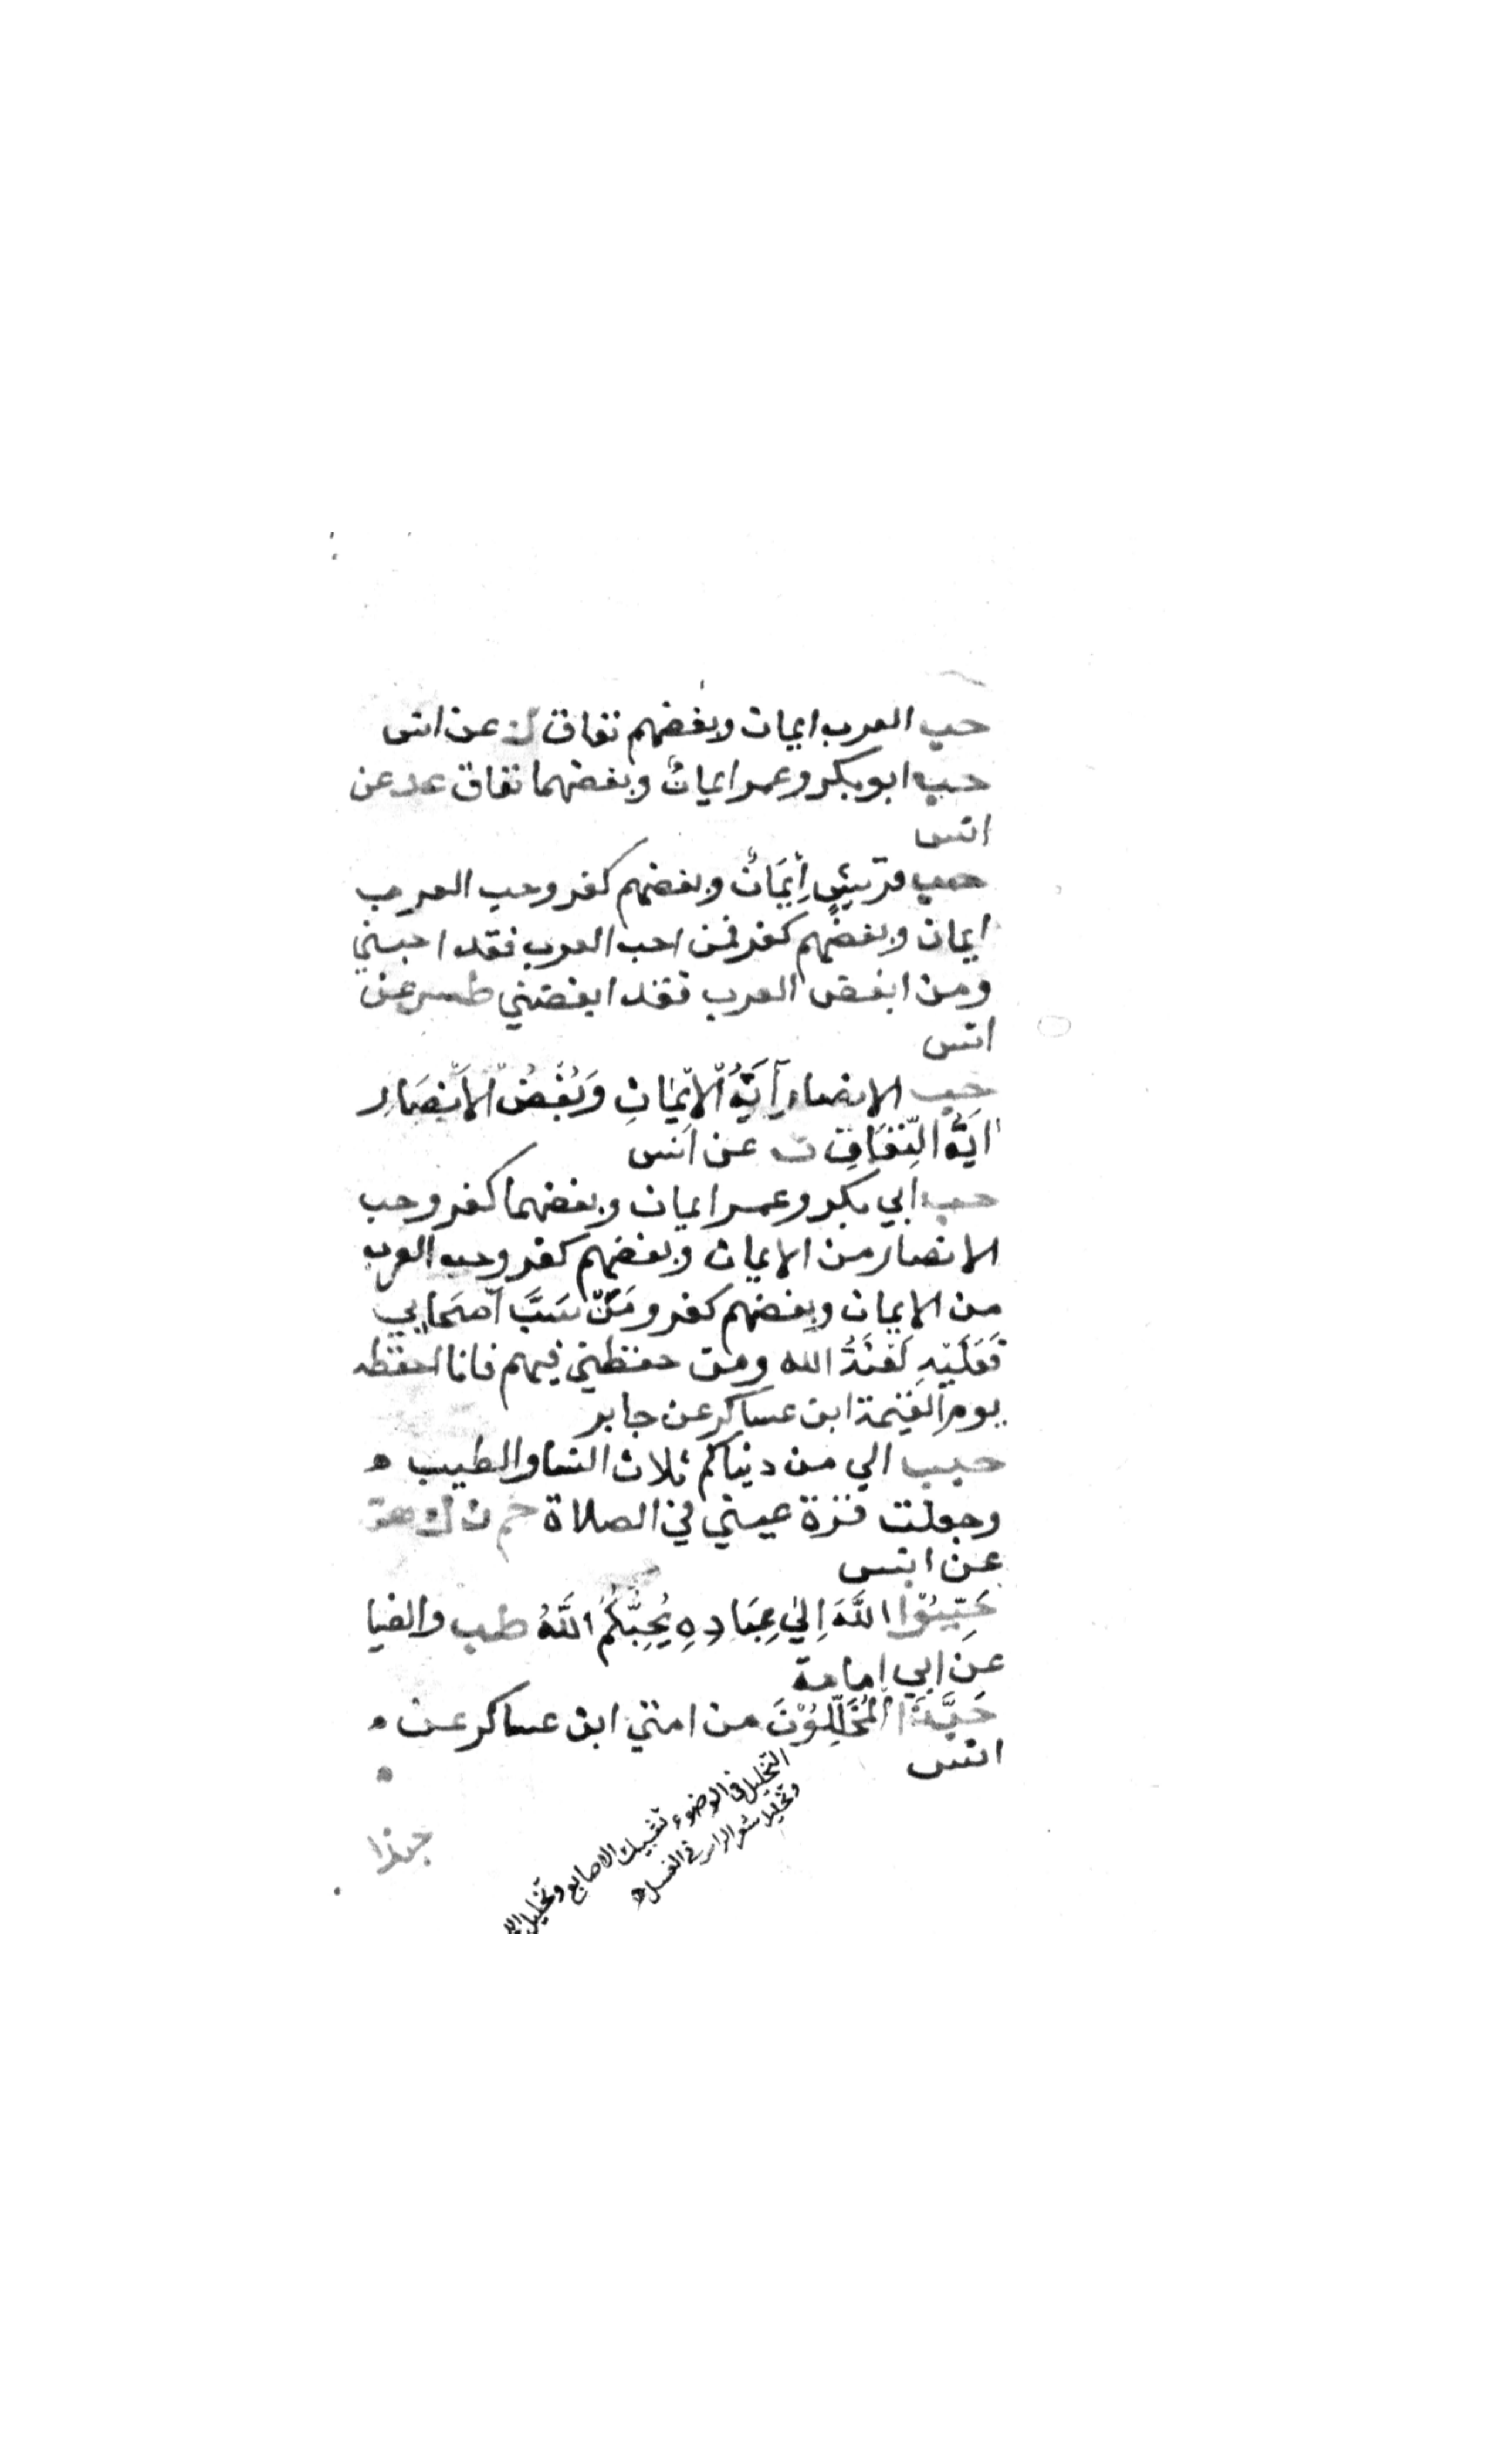 حب العرب ايمان وبغضهم نفاق ك عن انس
حب ابو بكر وعمر ايمانٌ وبغضهما نفاق عد عن
انس
حب قريشٍ اِيمَانٌ وبغضهم كفر وحب العرب
ايمان وبغضهم كفر فمن احب العرب فقد احبني
ومن ابغض العرب فقد ابغضني طس عن
انس
حب الانصار آيَةُ الْاِيْمَانِ وَبُغْضُ الْاَنْصَارِ
ايَةُ النِّفَاقِ ن عن انس
حب ابي بكر وعمر ايمان وبغضهما كفر وحب
الانصار من الايمان وبغضهم كفر وحب العرب
من الايمان وبغضهم كفر ومَنْ سَبَّ اَصحَابي
فَعَلَيْهِ لَعْنَةُ الله ومن حفظني فيهم فانا احفظه
يوم القيمة ابن عساكر عن جابر
حبب الي من دنياكم ثلاث النسا والطيب ه
وجعلت قرة عيني في الصلاة حم ن ك هق
عن انس
حَبِّبُوْا اللَّهَ اِلىٰ عِبَادِهِ يُحِبَّكُمُ اللَّهُ طب والضيا
عن ابي امامة
حَبَّذَا الْمُتَخَلِّلُوْنَ من امتي ابن عساكر عن ه
انس
التخليل في الوضوء تشبيك الاصابع وتخليل
وتخليل شعر الراس في الغسل ه
حبذا